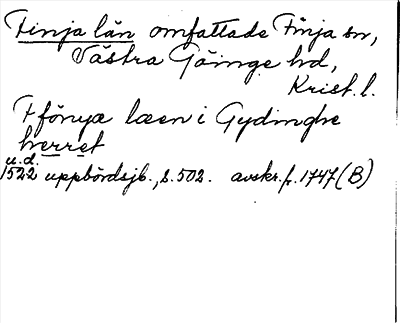 Finja län omfattade Finja sn,
Västra Göinge hd,
Krist. l.
Ffönya læen i Gydinghe
herret
u.d.
1522 uppbördsjb., s. 502. avskr. fr. 1747 (B)